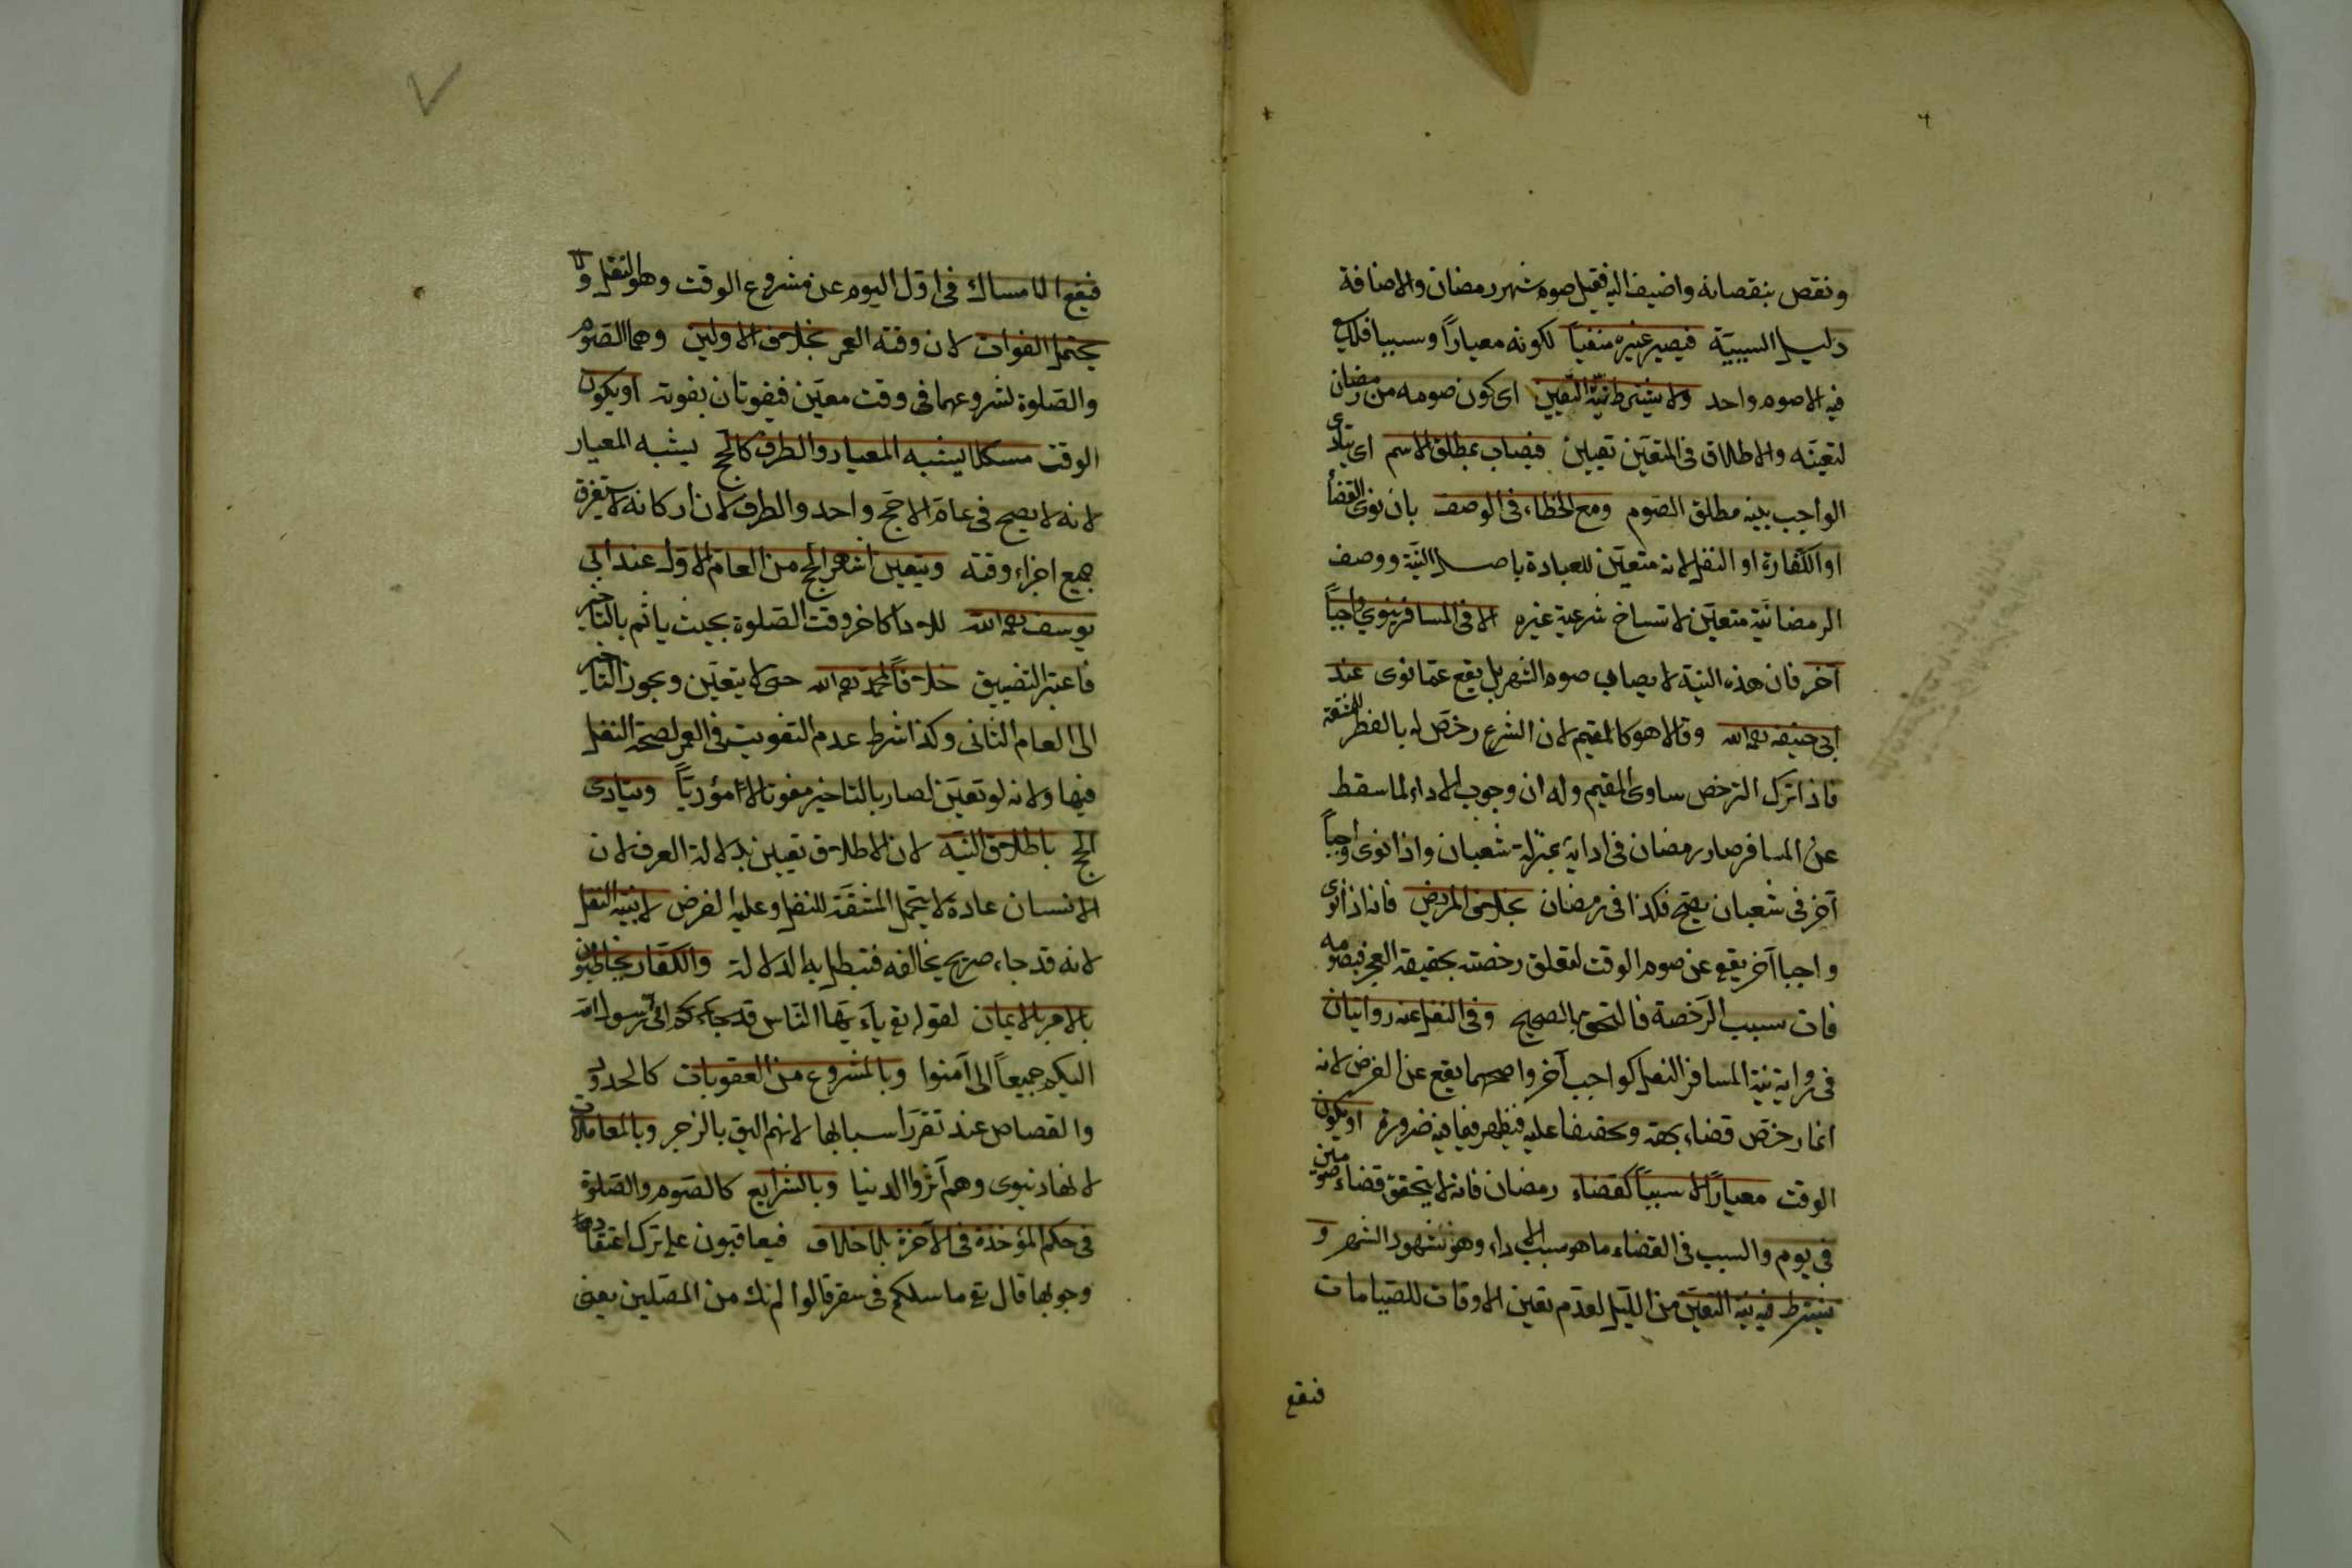 ونقص بنقصانه واضيف اليه فقيل صوم شهر رمضان والاضافة
دليل السببية فيصير غيره منفيا لكونه معيارا وسببا فلم يبق
فيه الا صوم واحد ولا يشترط نية التعيين اى كون صومه من رمضان
لتعينه والاطلاق فى المتعين تعيين فيصاب بمطلق الاسم اى يتادى
الواجب بنية مطلق الصوم ومع الخطاء فى الوصف بان نوى القضاء
او الكفارة او النفل لانه متعين للعبادة باصل النية ووصف
الرمضانية متعين لانتساخ شرعية غيره الا فى المسافر ينوى واجبا
آخر فان هذه النية لا يصاب صوم الشهر بل يقع عما نوى عند
ابى حنيفة رحمه الله وقالا هو كالمقيم لان الشرع رخص له بالفطر للمشقة
فاذا ترك الترخص ساوى المقيم وله ان وجوب الاداء لما سقط
عن المسافر صار رمضان فى ادايه بمنزلة شعبان واذا نوى واجبا
آخر فى شعبان يصح فكذا فى رمضان بخلاف المريض فانه اذا نوى
واجبا آخر يقع عن صوم الوقت لتعلق رخصته بحقيقة العجز فبصومه
فات سبب الرخصة فالتحق بالصحيح وفى النفل عنه روايتان
فى رواية نية المسافر النفل كواجب آخر واصحهما يقع عن الفرض لانه
انما رخص قضاء بحقه وتخفيفا عليه فيظهر فيما فيه ضرورة او يكون
الوقت معيارا لا سببا كقضاء رمضان فانه لا يتحقق قضاء صومين
فى يوم والسبب فى القضاء ما هو سبب الاداء وهو شهود الشهر و
يشترط فيه نية التعيين من الليل لعدم تعين الاوقات للصيامات
فيقع
فيقع الامساك فى اول اليوم عن مشروع الوقت وهو النفل ولا
يحتمل الفوات لان وقته العمر بخلاف الاولين وهما الصوم
والصلوة لشروعهما فى وقت معين فيفوتان بفوته او يكون
الوقت مشكلا يشبه المعيار والظرف كالحج يشبه المعيار
لانه لا يصح فى عام الا حج واحد والظرف لان اركانه لا يستغرق
جميع اجزاء وقته ويتعين اشهر الحج من العام الاول عند ابى
يوسف رحمه الله للاداء كاخر وقت الصلوة بحيث ياثم بالتاخير
فاعتبر التضييق خلافا لمحمد رحمه الله حتى لا يتعين ويجوز التاخير
الى العام الثانى وكذا شرط عدم التفويت فى العمر لصحة النفل
فيها ولانه لو تعين لصار بالتاخير مفوتا لا مؤديا ويتادى
الحج باطلاق النية لان الاطلاق تعيين بدلالة العرف لان
الانسان عادة لا يتحمل المشقة للنفل وعليه الفرض لا بنية النفل
لانه قد جاء صريح يخالفه فتبطل به الدلالة والكفار يخاطبون
بالامر بالايمان لقوله تع يآ يها الناس قد جاءكم انى رسول الله
اليكم جميعا الى آمنوا وبالمشروع من العقوبات كالحدود
والقصاص عند تقرر اسبابها لانهم اليق بالزجر وبالمعاملات
لانها دنيوى وهم آثروا الدنيا وبالشرايع كالصوم والصلوة
فى حكم المؤخذة فى الآخرة بلا خلاف فيعاقبون على ترك اعتقادها
وجوبها قال تع ما سلككم فى سقر قالوا لم نك من المصلين يعنى